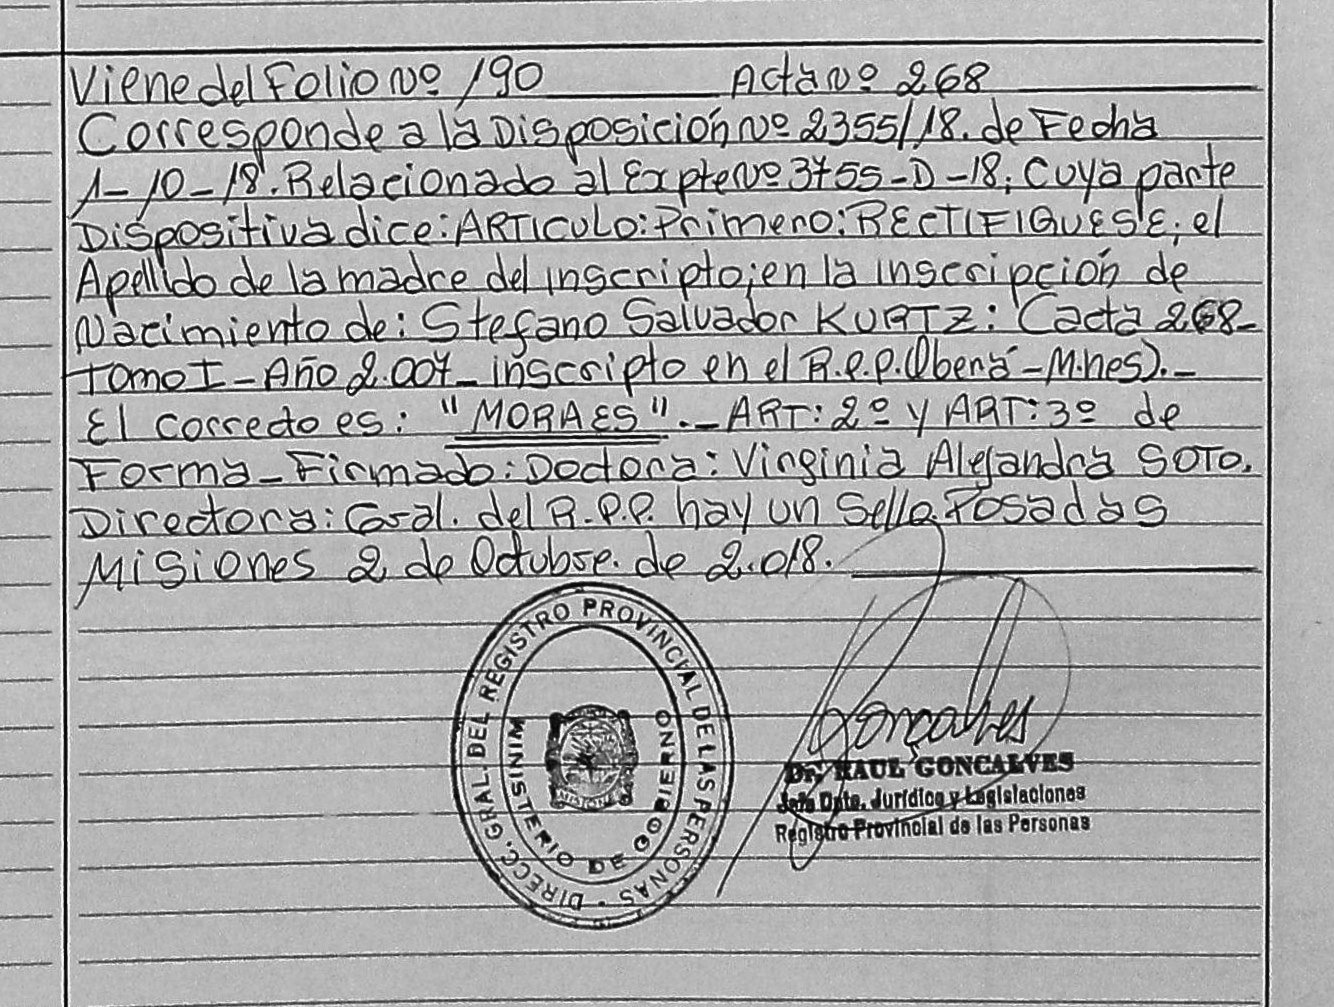 Viene del Folio Nº 190 Acta Nº 268
Corresponde a la Disposición Nº 2355/18. de Fecha
1-10-18. Relacionado al Expte Nº 3755-D-18; Cuya parte
Dispositiva dice: ARTICULO: Primero: RECTIFIQUESE; el
Apellido de la madre del inscripto; en la inscripción de
Nacimiento de: Stefano Salvador KURTZ: Cacta 268-
Tomo I - Año 2.007- inscripto en el R.P.P. (Oberá - M.nes). -
El correcto es: "MORAES". - ART: 2º y ART: 3º de
Forma - Firmado: Doctora: Virginia Alejandra SOTO.
Directora: Gral. del R.P.P. hay un Sello. Posadas
Misiones 2 de Octubre. de 2.018.
DIRECC. GRAL. DEL REGISTRO PROVINCIAL DE LAS PERSONAS
MINISTERIO DE GOBIERNO
MISIONES
Goncalves
Dr. RAUL GONCALVES
Jefe Dpto. Jurídico y Legislaciones
Registro Provincial de las Personas